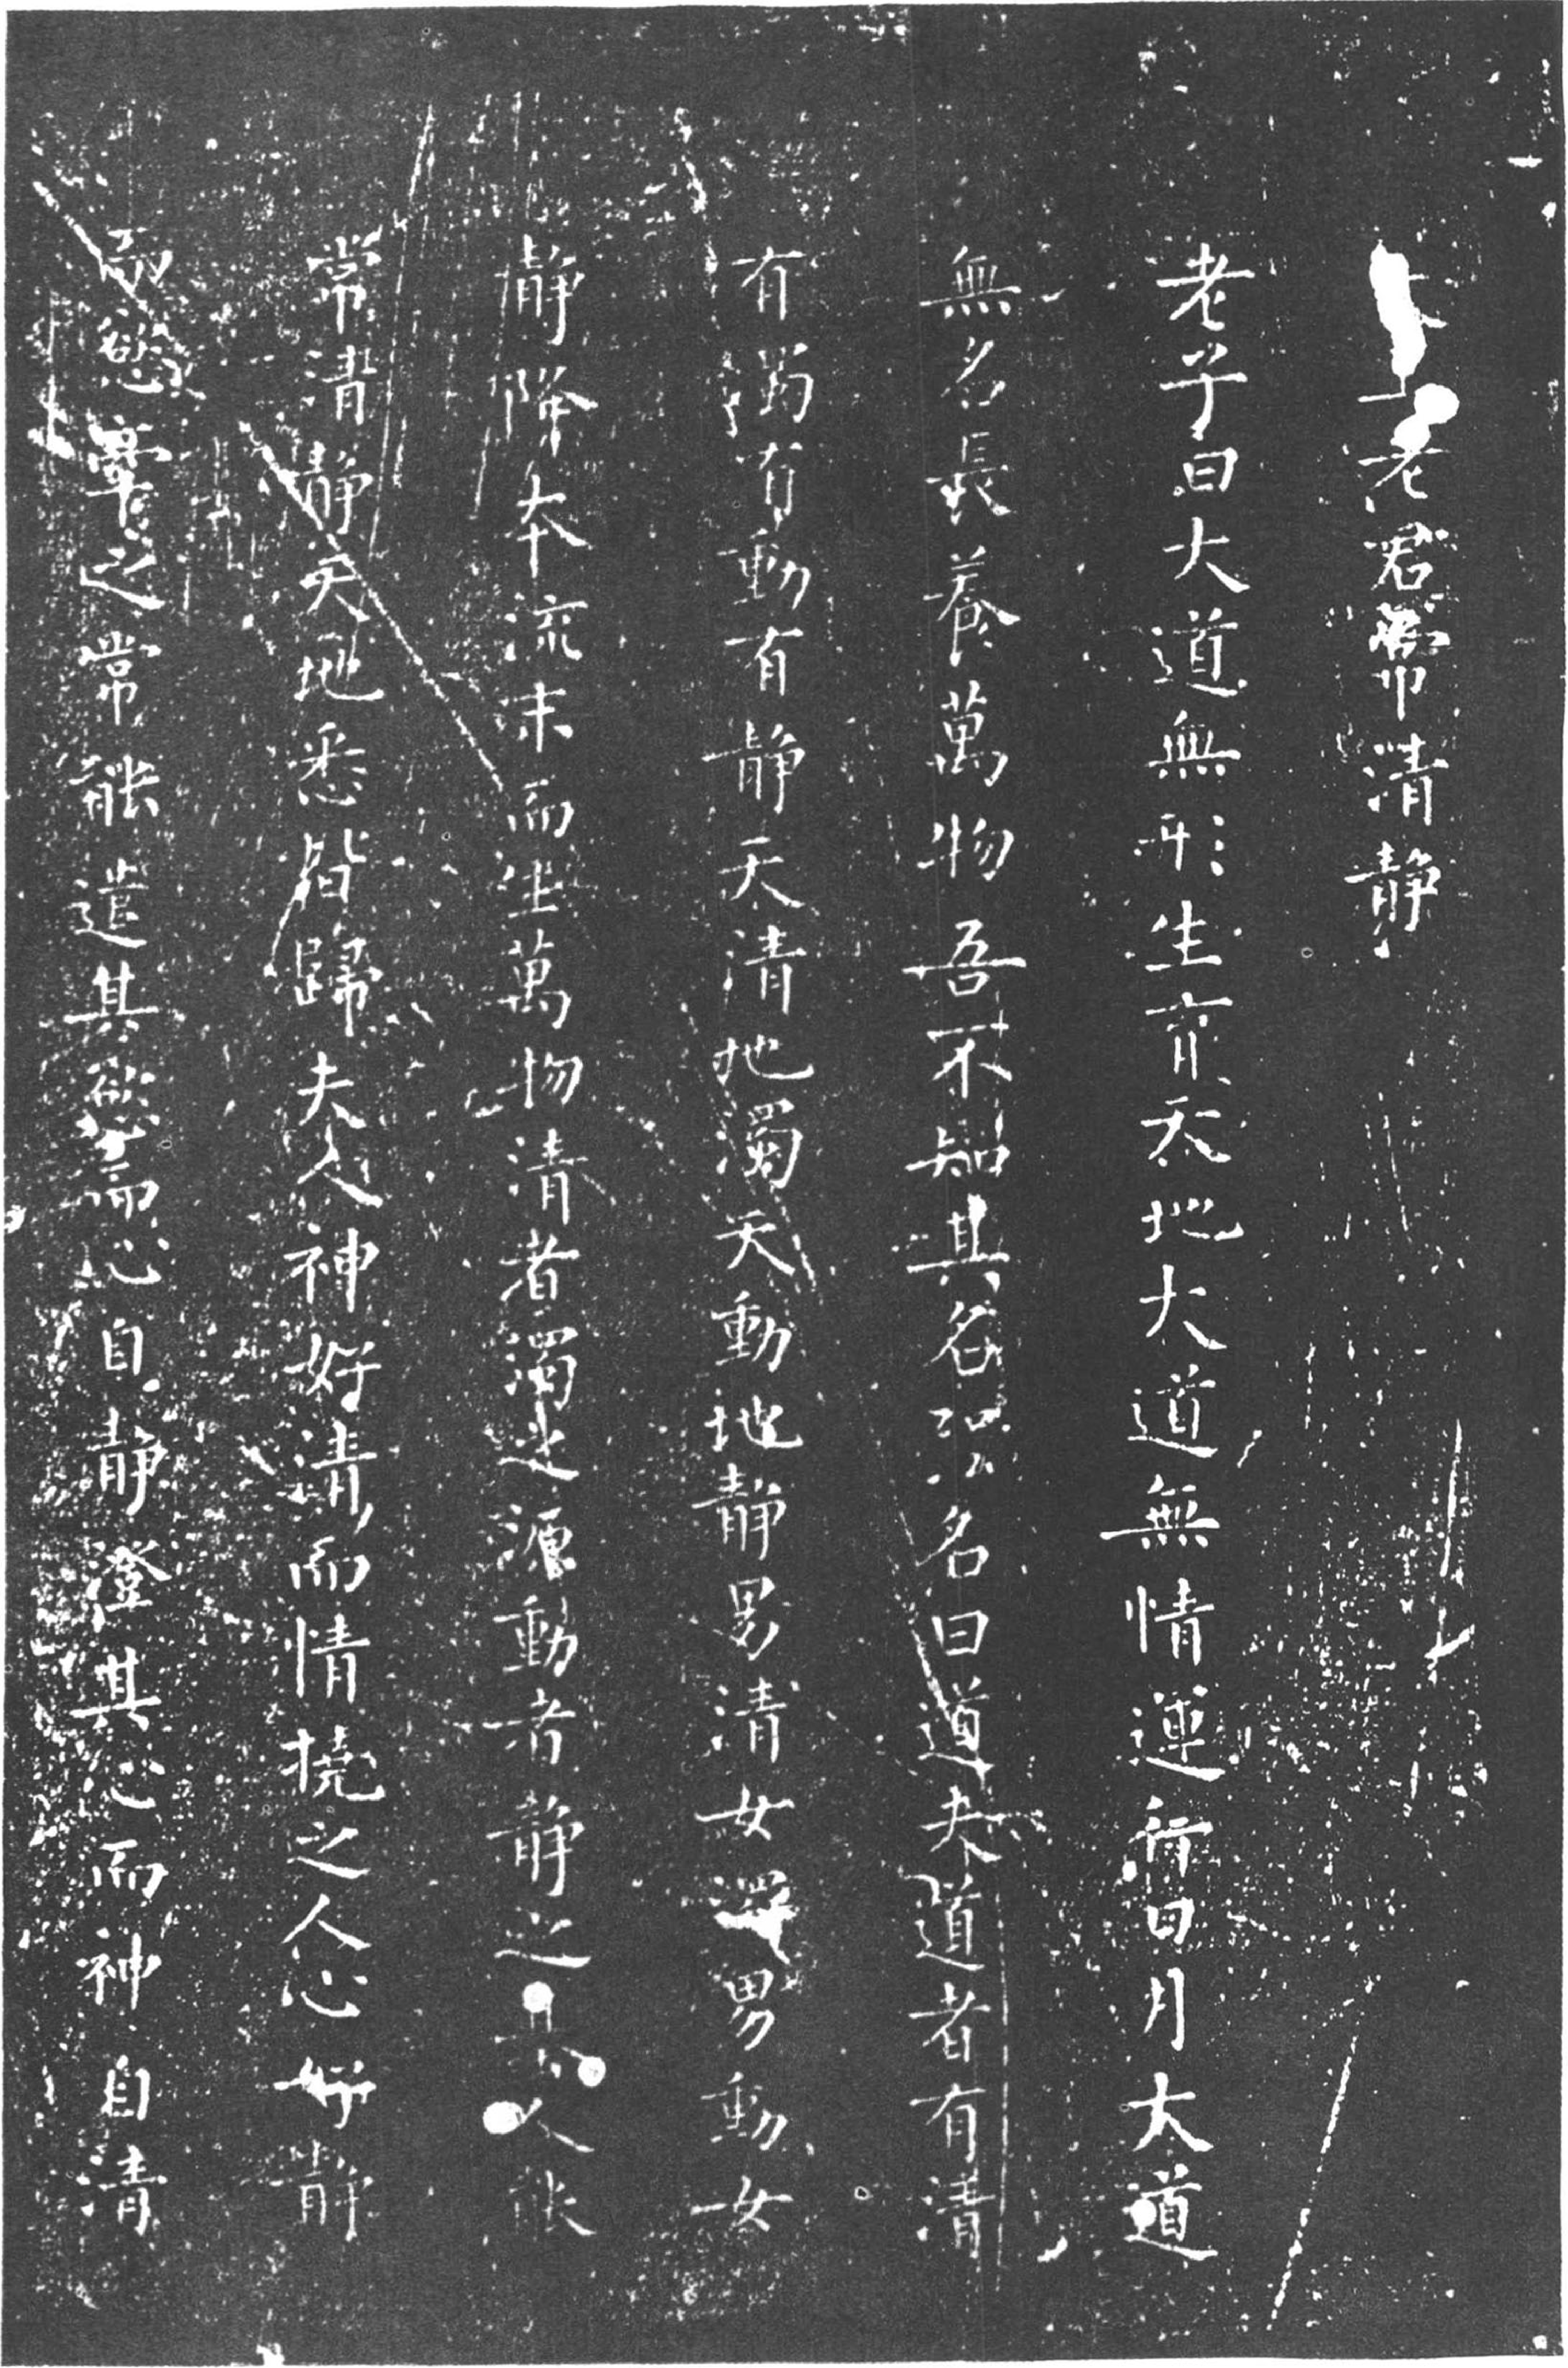 太上老君常清静
老子曰大道無形生育天地大道無情運行日月大道
無名長養萬物吾不知其名强名曰道夫道者有清
有濁有動有静天清地濁天動地静男清女濁男動女
静降本流末而生萬物清者濁之源動者静之基人能
常清静天地悉皆歸夫人神好清而情撓之人心好静
而慾牽之常能遣其慾而心自静澄其心而神自清